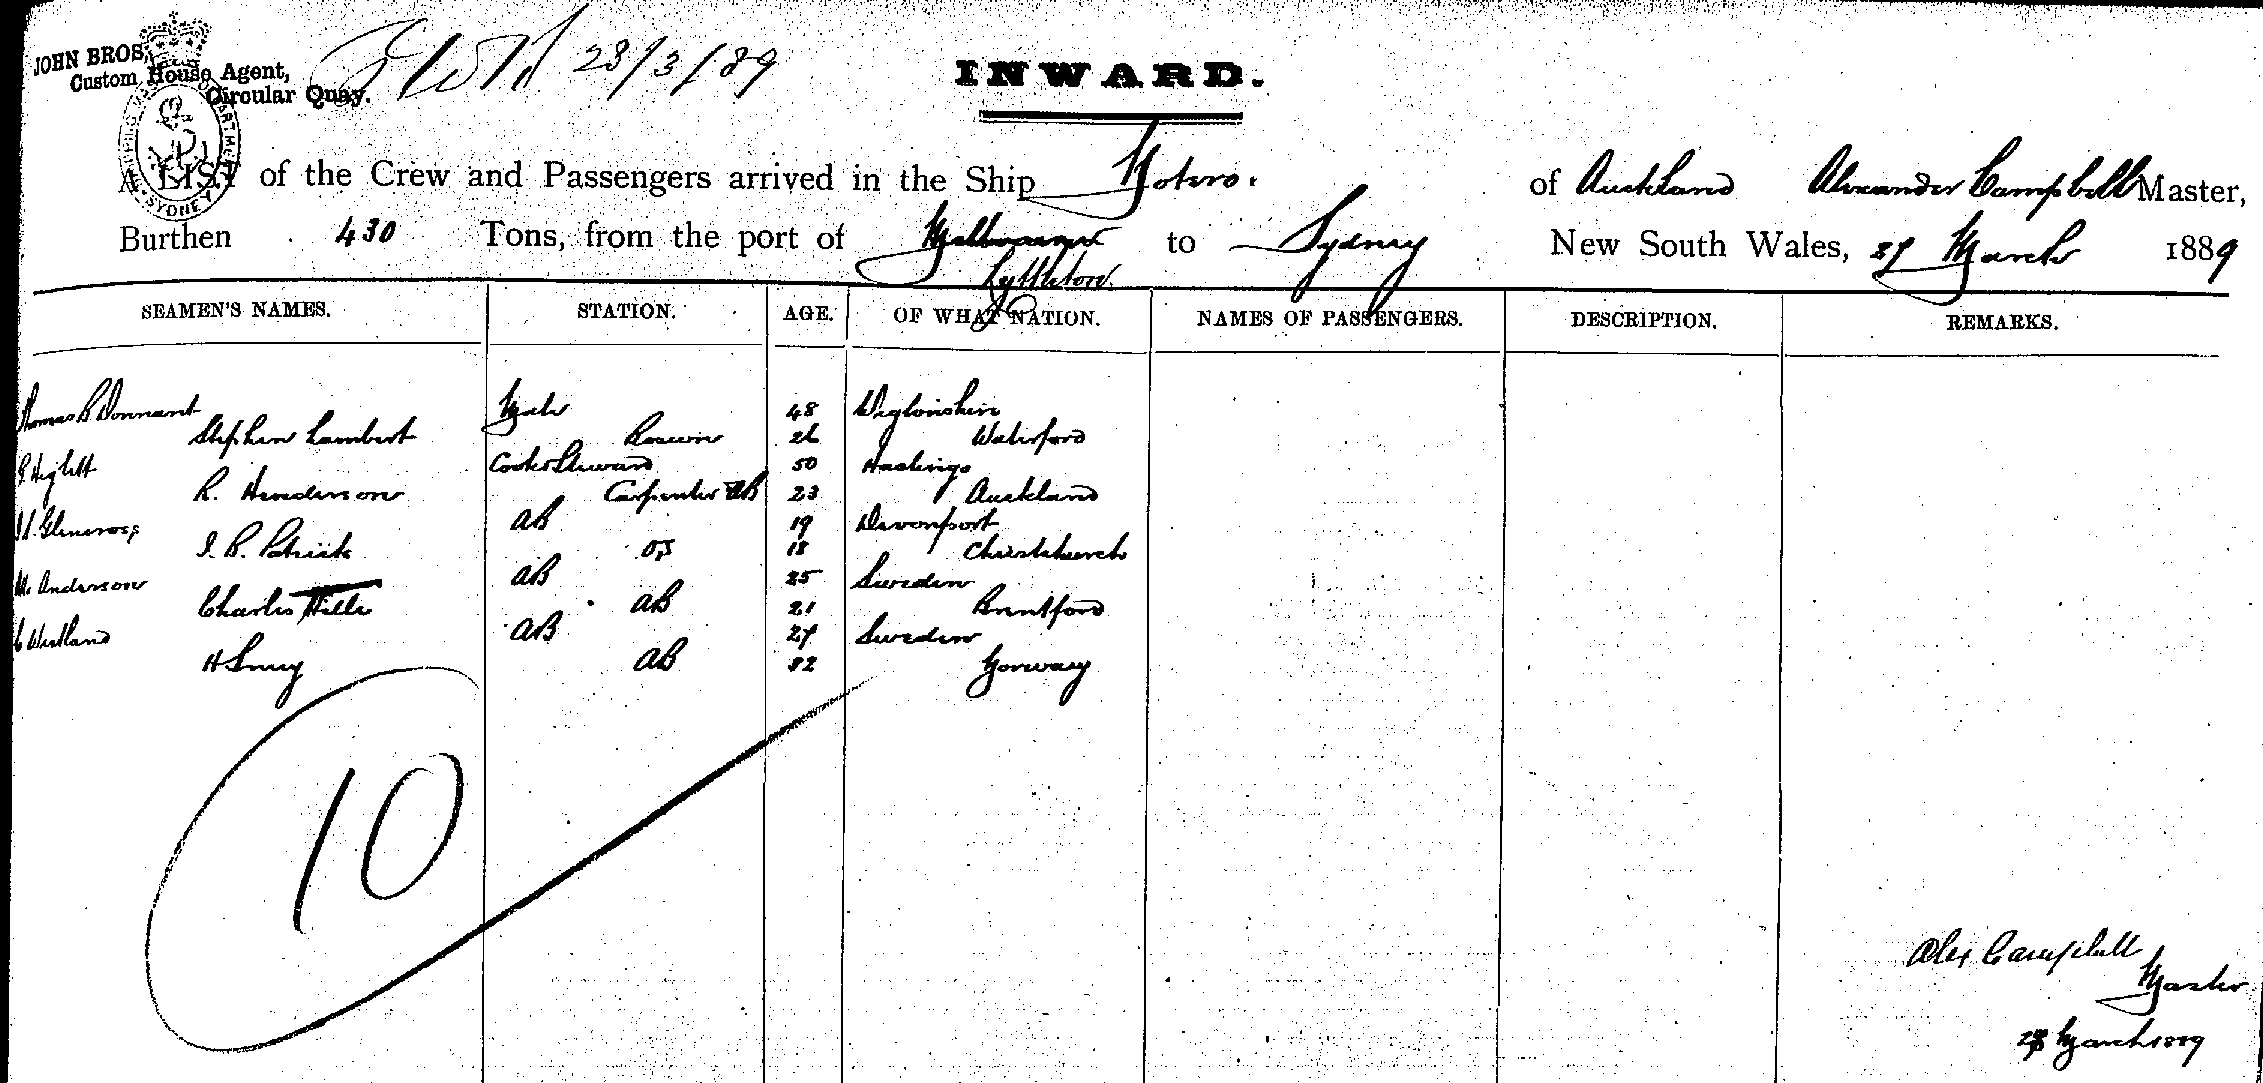 JOHN BROS,
Custom House Agent,
Circular Quay.
28/3/89
INWARD.
SYDNEY
A LIST of the Crew and Passengers arrived in the Ship of Auckland Alexander Campbell Master,
Burthen 430 Tons, from the port of Melbourne to Sydney New South Wales, 27 March 1889
Lyttleton
SEAMEN'S NAMES. STATION. AGE. OF WHAT NATION. NAMES OF PASSENGERS. DESCRIPTION. REMARKS.
Thomas B Donnant Mate 48 Wigtonshire
Stephen Lambert 26 Waterford
Highett Cook & Steward 50 Hastings
R. Henderson Carpenter AB 23 Auckland
Glencross AB 19 Devonport
J. R. Patrick OS 18 Christchurch
Anderson AB 25 Sweden
Charles Hills AB 21 Brentford
C Westland AB 27 Sweden
H AB 32 Norway
10
Alex Campbell
Master
March 1889